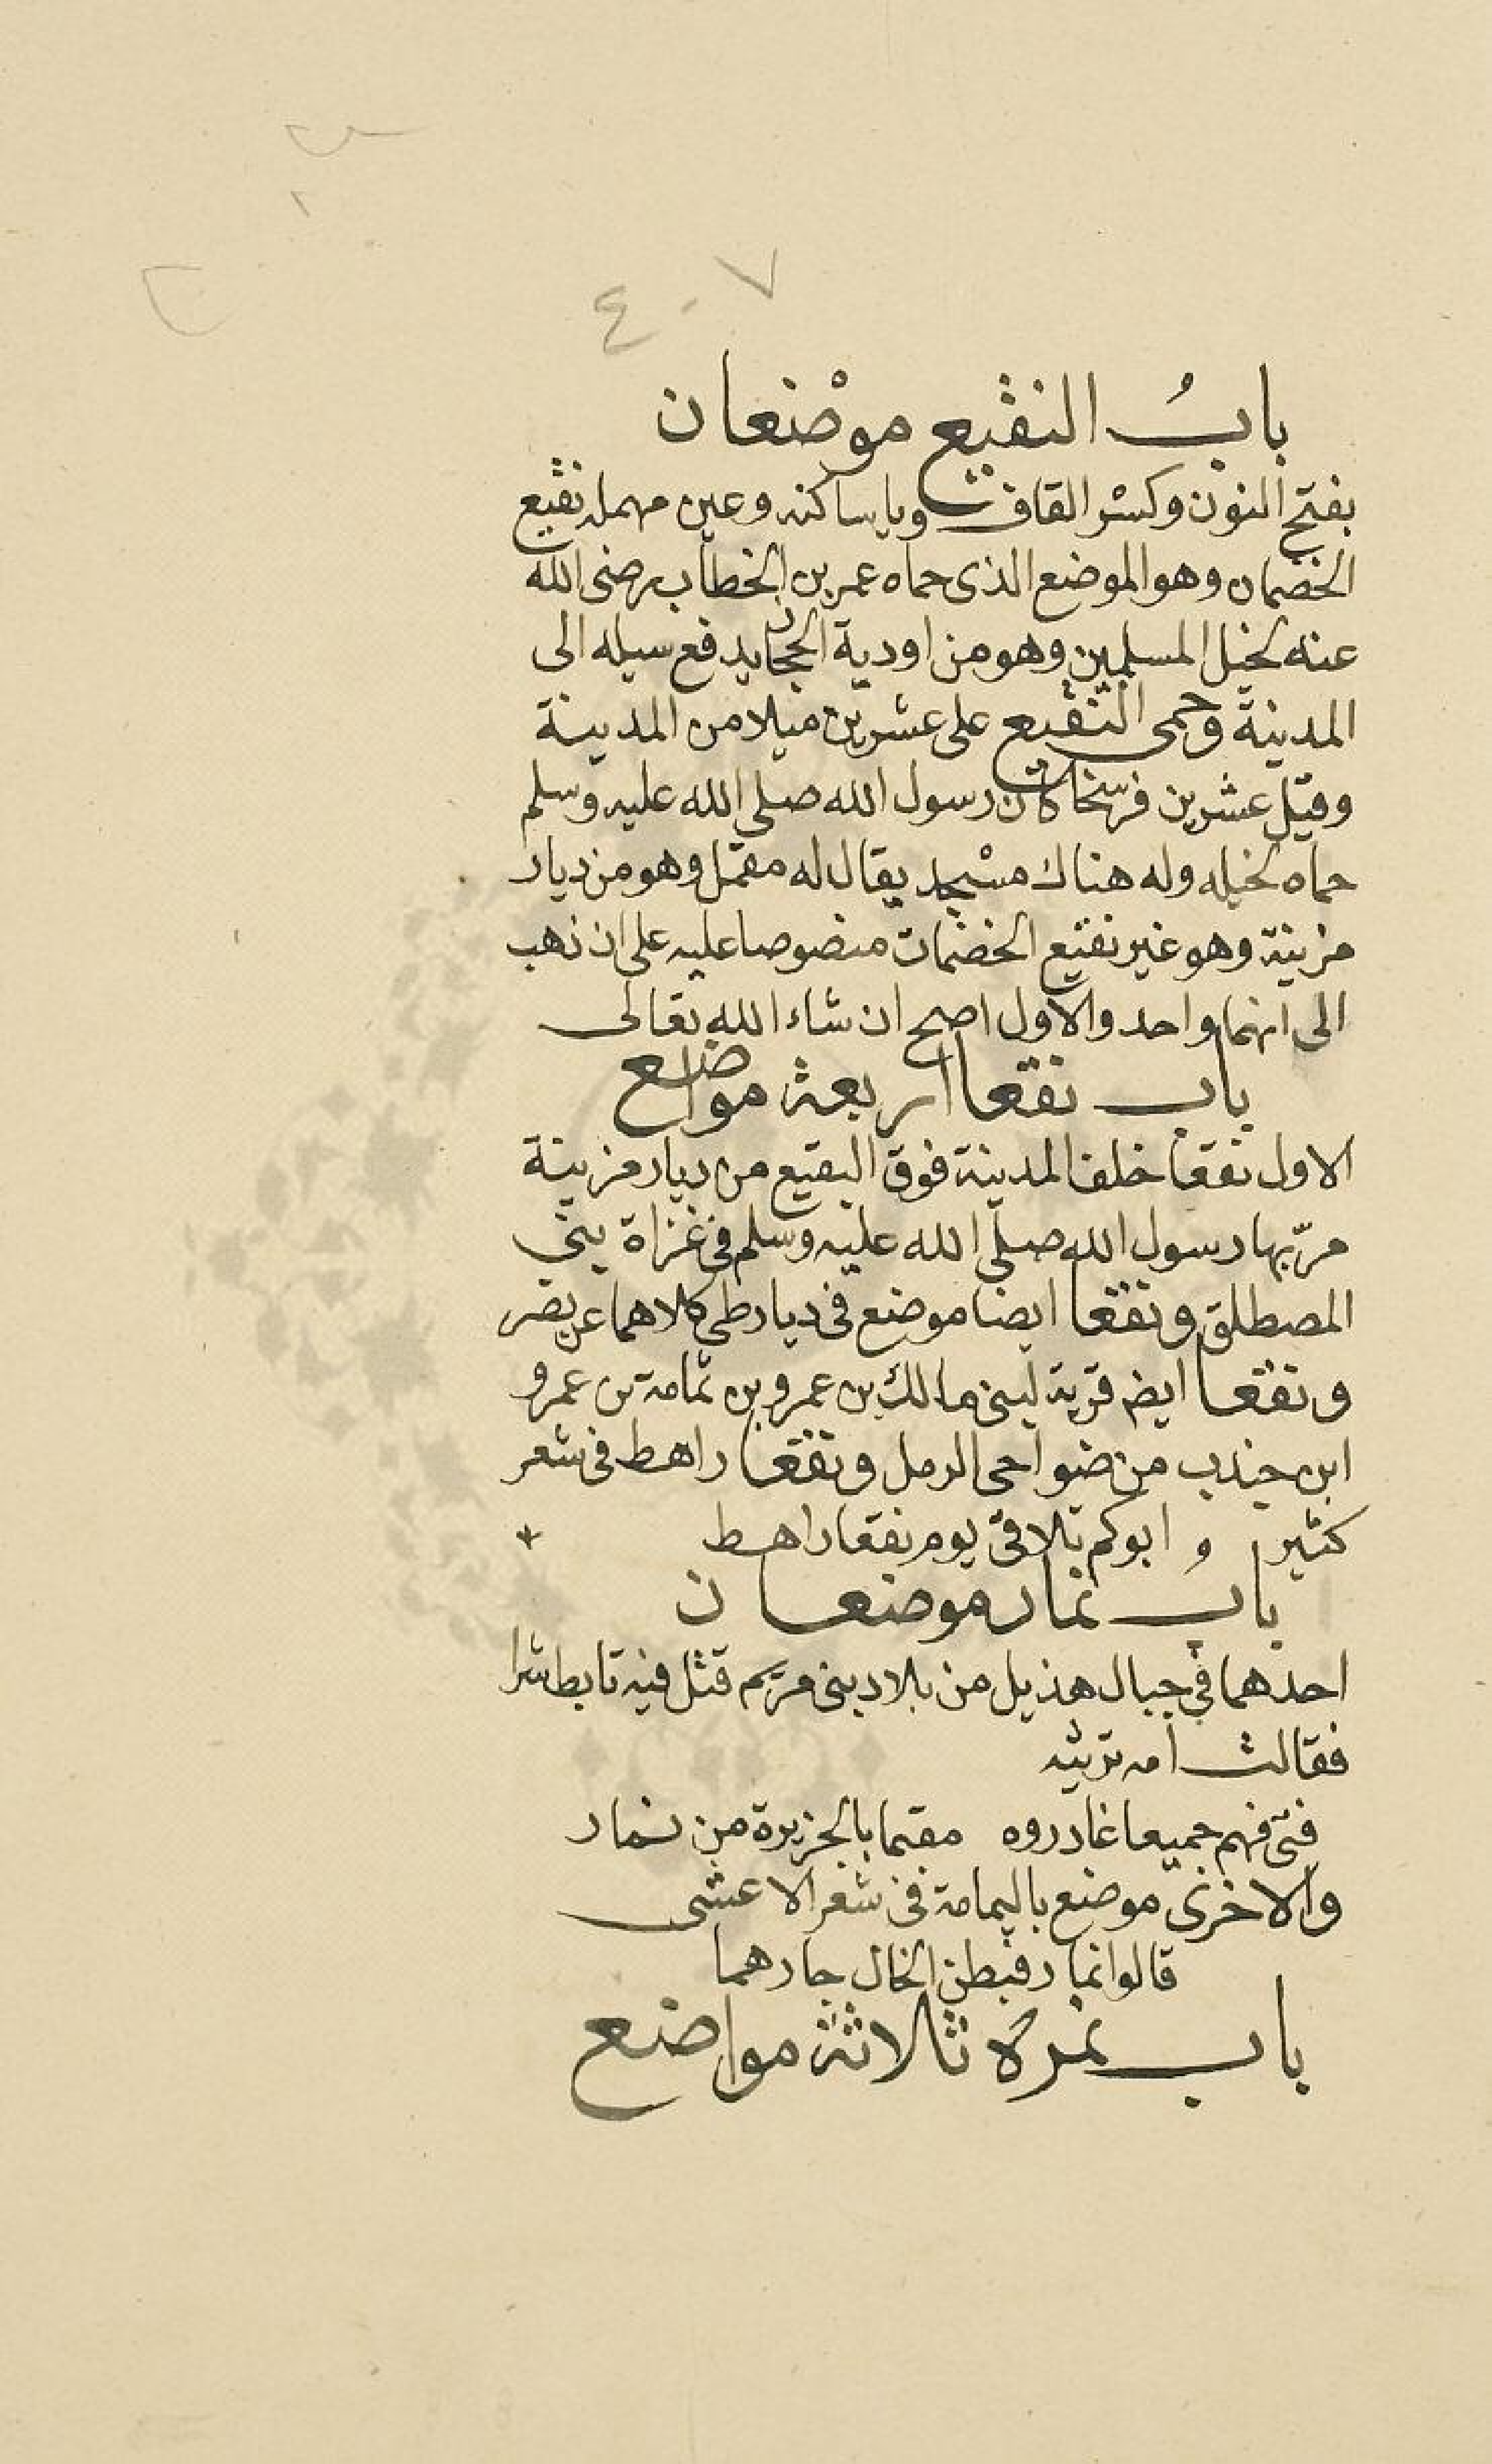 ٤٠٧
باب النقيع موضعان
بفتح النون وكسر القاف وياساكنه وعين مهمله نقيع
الخضمات وهو الموضع الذى حماه عمر بن الخطاب رضى الله
عنه لخيل المسلمين وهو من اودية الحجاز يدفع سيله الى
المدينة وحمى النقيع على عشرين ميلا من المدينة
وقيل عشرين فرسخا كان رسول الله صلى الله عليه وسلم
حماه لخيله وله هناك مسجد يقال له مقمل وهو من ديار
مزينة وهو غير نقيع الخضمات منصوصا عليه على ان ذهب
الى انهما واحد والاول اصح ان شاء الله تعالى
باب نقعا اربعة مواضع
الاول نقعا خلف المدينة فوق البقيع من ديار مزينة
مرّ بها رسول الله صلى الله عليه وسلم فى غزاة بنى
المصطلق ونقعا ايضا موضع فى ديار طى كلاهما عن نصر
ونقعا ايض قرية لبنى مالك بن عمرو بن ثمامة بن عمرو
ابن جندب من ضواحى الرمل ونقعا راهط فى شعر
كثير و ابوكم تلاقى يوم نقعا راهط
باب نمار موضعان
احدهما فى جبال هذيل من بلاد بنى قتل فيه تابط شرا
فقالت امه ترثيه
فتى فهم جميعا غادروه مقيما بالجزيرة من نمار
والاخرى موضع باليمامة فى شعر الاعشى
قالوا نمار فبطن الخال جارهما
باب نمرة ثلاثة مواضع